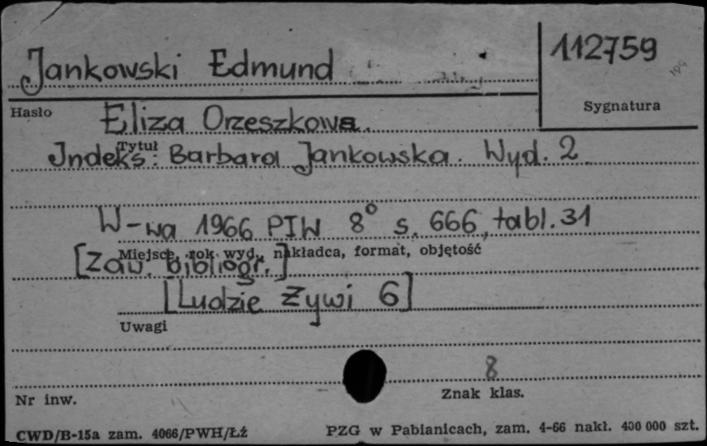 Jankowski Edmund
112759
Hasło
Sygnatura
Eliza Orzeszkowa.
Tytuł
Indeks: Barbara Jankowska. Wyd. 2
W-wa 1966 PIW 8° s. 666, tabl. 31
Miejsce, rok wyd., nakładca, format, objętość
[Zaw. bibliogr.]
[Ludzie Żywi 6]
Uwagi
8
Nr inw.
Znak klas.
CWD/B-15a zam. 4066/PWH/Łź
PZG w Pabianicach, zam. 4-66 nakł. 400 000 szt.